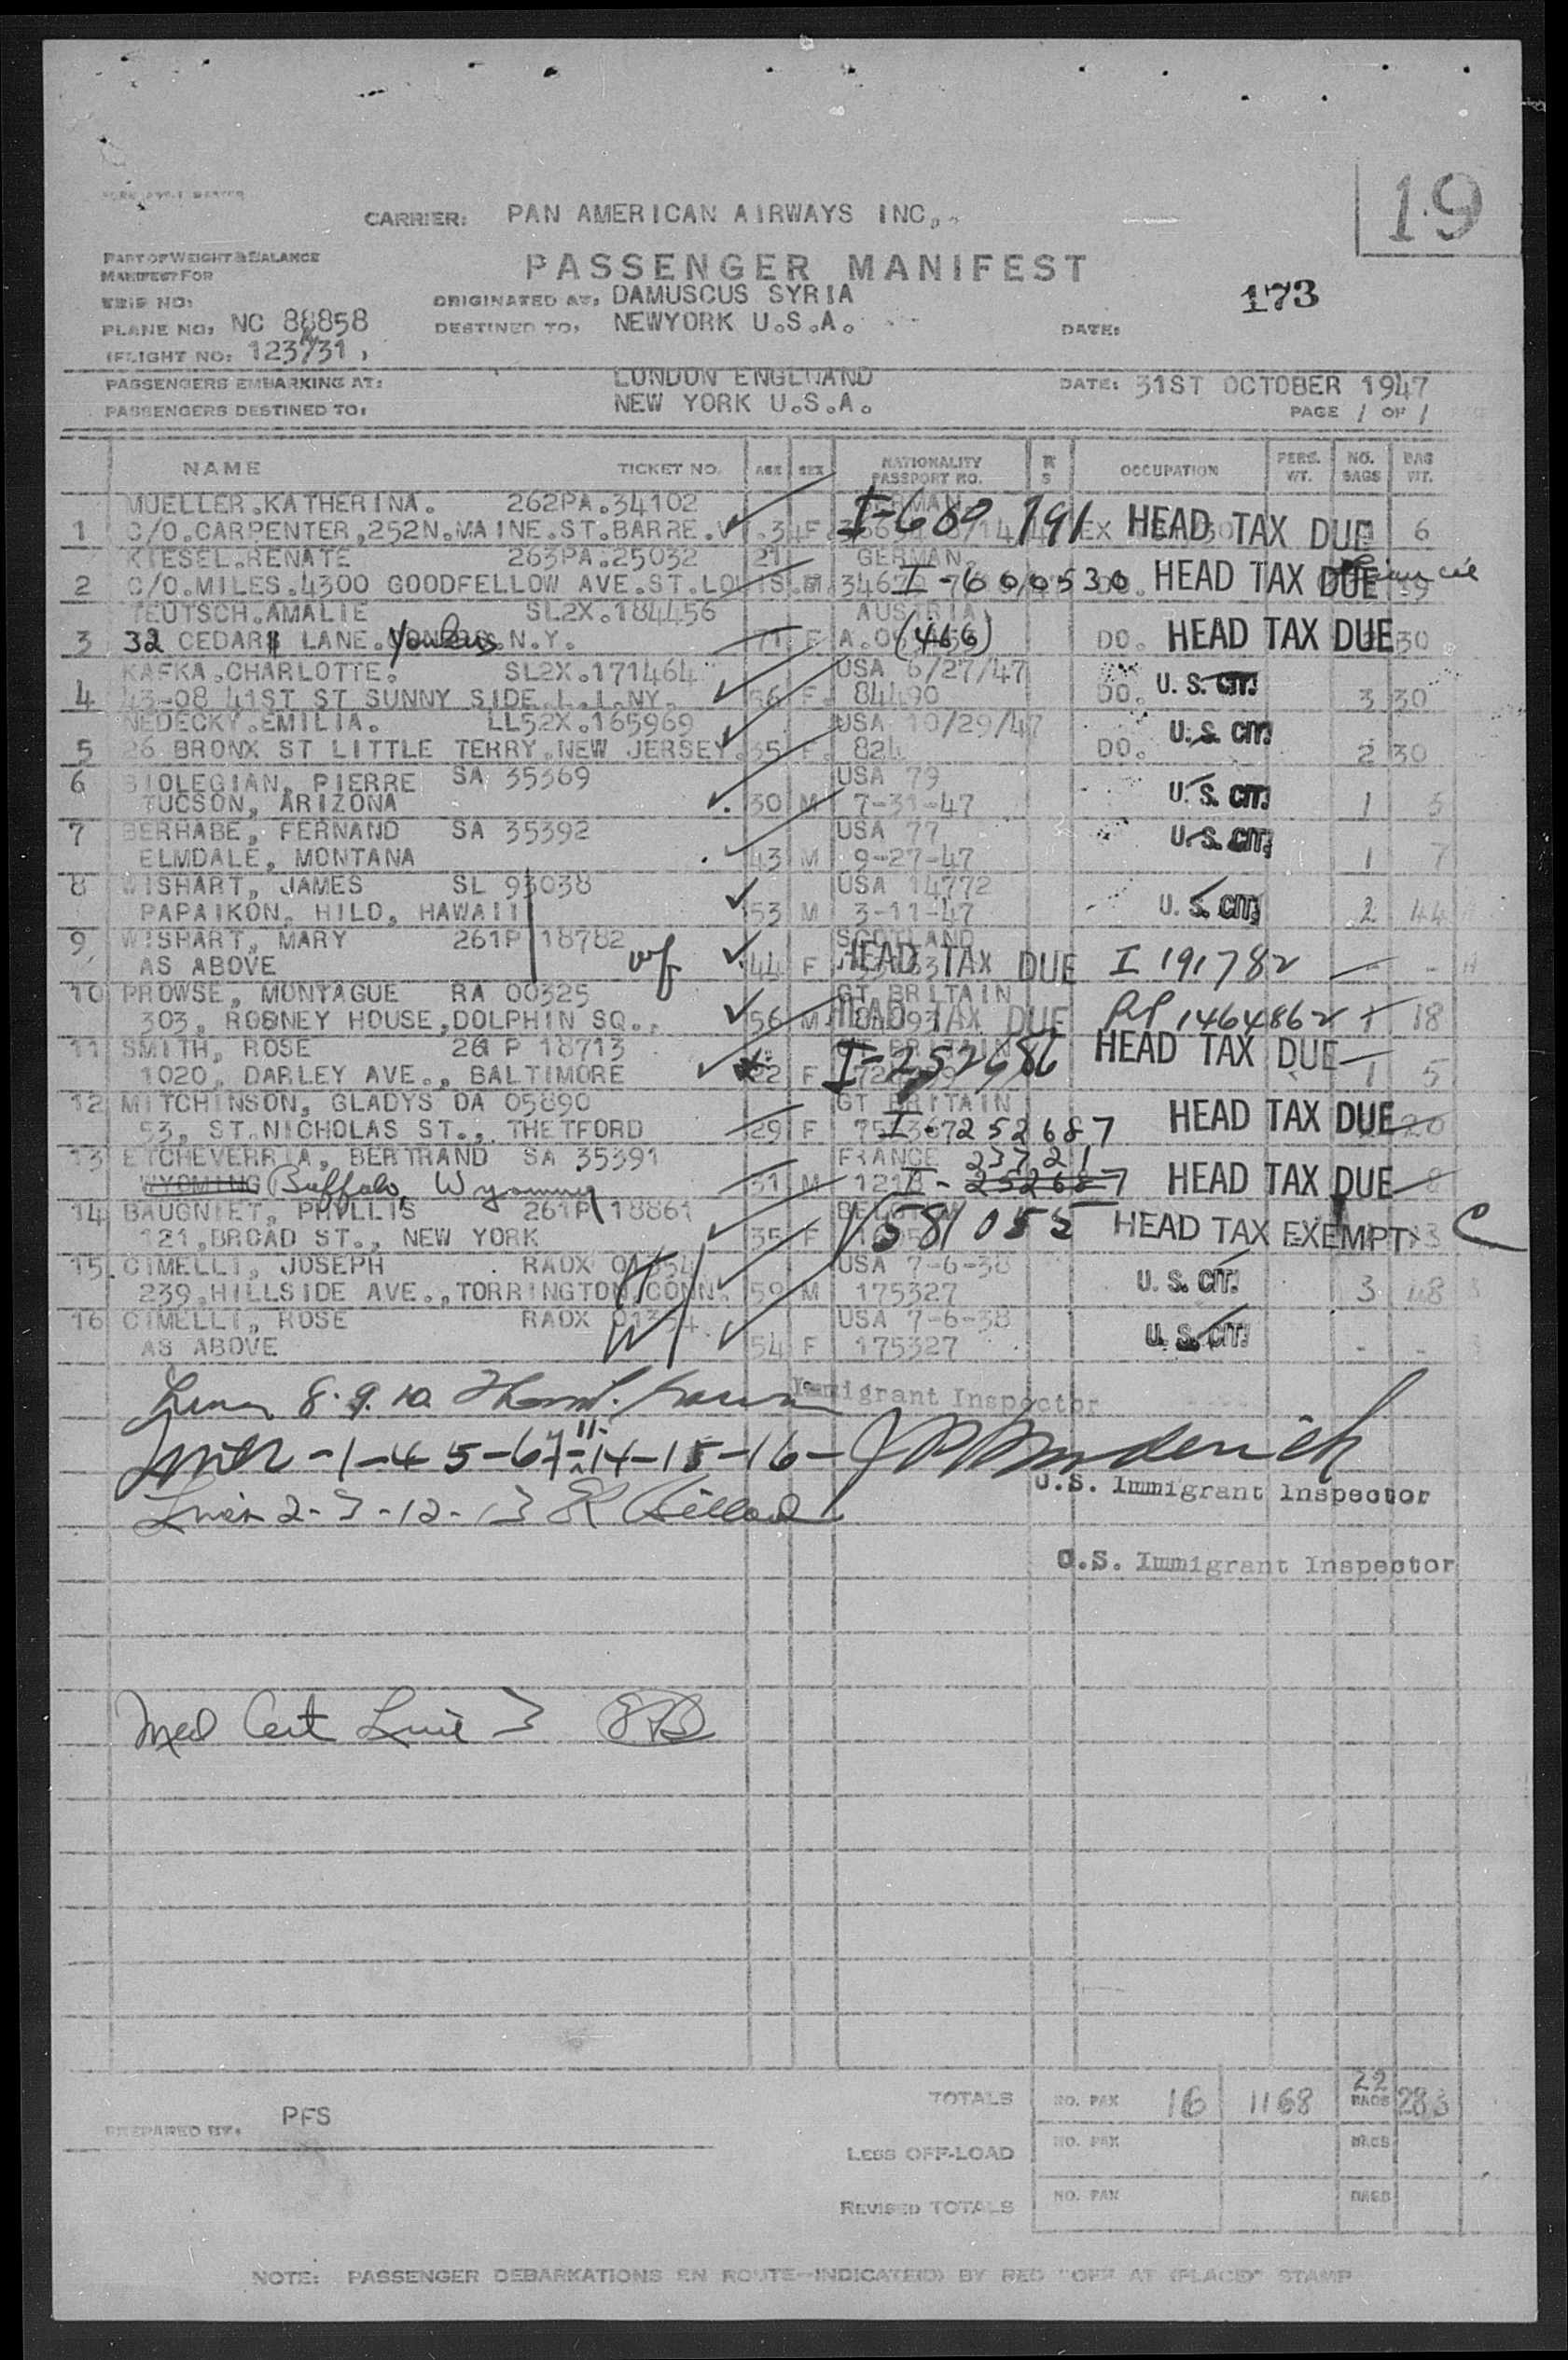 19
CARRIER: PAN AMERICAN AIRWAYS INC.
PART OF WEIGHT & BALANCE
MANIFEST FOR
PASSENGER MANIFEST
173
TRIP NO:
ORIGINATED AT: DAMUSCUS SYRIA
PLANE NO: NC 88858
DESTINED TO: NEWYORK U.S.A.
DATE:
(FLIGHT NO: 123/31)
PASSENGERS EMBARKING AT: LONDON ENGLUAND
DATE: 31ST OCTOBER 1947
PASSENGERS DESTINED TO: NEW YORK U.S.A.
PAGE 1 OF 1
NAME TICKET NO. AGE SEX NATIONALITY PASSPORT NO. R S OCCUPATION PERS. WT. NO. BAGS BAG WT.
MUELLER.KATHERINA. 262PA.34102 GERMAN
1 C/O.CARPENTER,252N.MAINE.ST.BARRE.V F I-680791 HEAD TAX DUE 6
KIESEL.RENATE 263PA.25032 21 GERMAN.
2 C/O.MILES.4300 GOODFELLOW AVE.ST.LOUIS. I-600530 HEAD TAX DUE
TEUTSCH.AMALIE SL2X.184456 AUSTRIA
3 32 CEDAR LANE. Yonkers N.Y. 71 F (466) DO. HEAD TAX DUE 30
KAFKA.CHARLOTTE. SL2X.171464 USA 6/27/47
4 43-08 41ST ST SUNNY SIDE.L.I.NY. 56 F. 84490 DO. U.S. CIT. 3 30
NEDECKY.EMILIA. LL52X.165969 USA 10/29/47
5 26 BRONX ST LITTLE TERRY.NEW JERSEY. 35 F. 824 DO. U.S. CIT. 2 30
6 BIOLEGIAN, PIERRE SA 35369 USA 79
TUCSON, ARIZONA 30 M 7-31-47 U.S. CIT. 1 3
7 BERHABE, FERNAND SA 35392 USA 77
ELMDALE, MONTANA 43 M 9-27-47 U.S. CIT. 1 7
8 WISHART, JAMES SL 93038 USA 14772
PAPAIKON, HILO, HAWAII 53 M 3-11-47 U.S. CIT. 2 44
9 WISHART, MARY 261P 18782 wf SCOTLAND
AS ABOVE 44 F HEAD TAX DUE I 191782 - -
10 PROWSE, MONTAGUE RA 00325 GT BRITAIN
303, RODNEY HOUSE,DOLPHIN SQ., 56 M HEAD TAX DUE RP 1464862 1 18
11 SMITH, ROSE 261 P 18713 GT BRITAIN
1020, DARLEY AVE., BALTIMORE 22 F I-252686 HEAD TAX DUE 1 5
12 MITCHINSON, GLADYS DA 05890 GT BRITAIN
53, ST.NICHOLAS ST., THETFORD 29 F I-252687 HEAD TAX DUE 20
13 ETCHEVERRIA, BERTRAND SA 35391 FRANCE 23721
WYOMING Buffalo, Wyoming 51 M I-252687 HEAD TAX DUE 8
14 BAUGNIET, PHYLLIS 261P 18861
121,BROAD ST., NEW YORK 35 F 581055 HEAD TAX EXEMPT C
15. CIMELLI, JOSEPH RADX 01354 USA 7-6-38
239,HILLSIDE AVE.,TORRINGTON,CONN. H 59 M 175327 U.S. CIT. 3 48
16 CIMELLI, ROSE RADX 01354 USA 7-6-38
AS ABOVE W 54 F 175327 U.S. CIT. - -
Lines 8.9.10.
Immigrant Inspector
Lines -1-4-5-6-7-11-14-15-16-
U.S. Immigrant Inspector
Lines 2-3-12-13
U.S. Immigrant Inspector
Med Cert Line 3
TOTALS NO. PAX 16 1168 22 BAGS 283
PREPARED BY: PFS
LESS OFF-LOAD NO. PAX BAGS
REVISED TOTALS NO. PAX BAGS
NOTE: PASSENGER DEBARKATIONS EN ROUTE-INDICATE(D) BY RED "OFF AT (PLACE)" STAMP